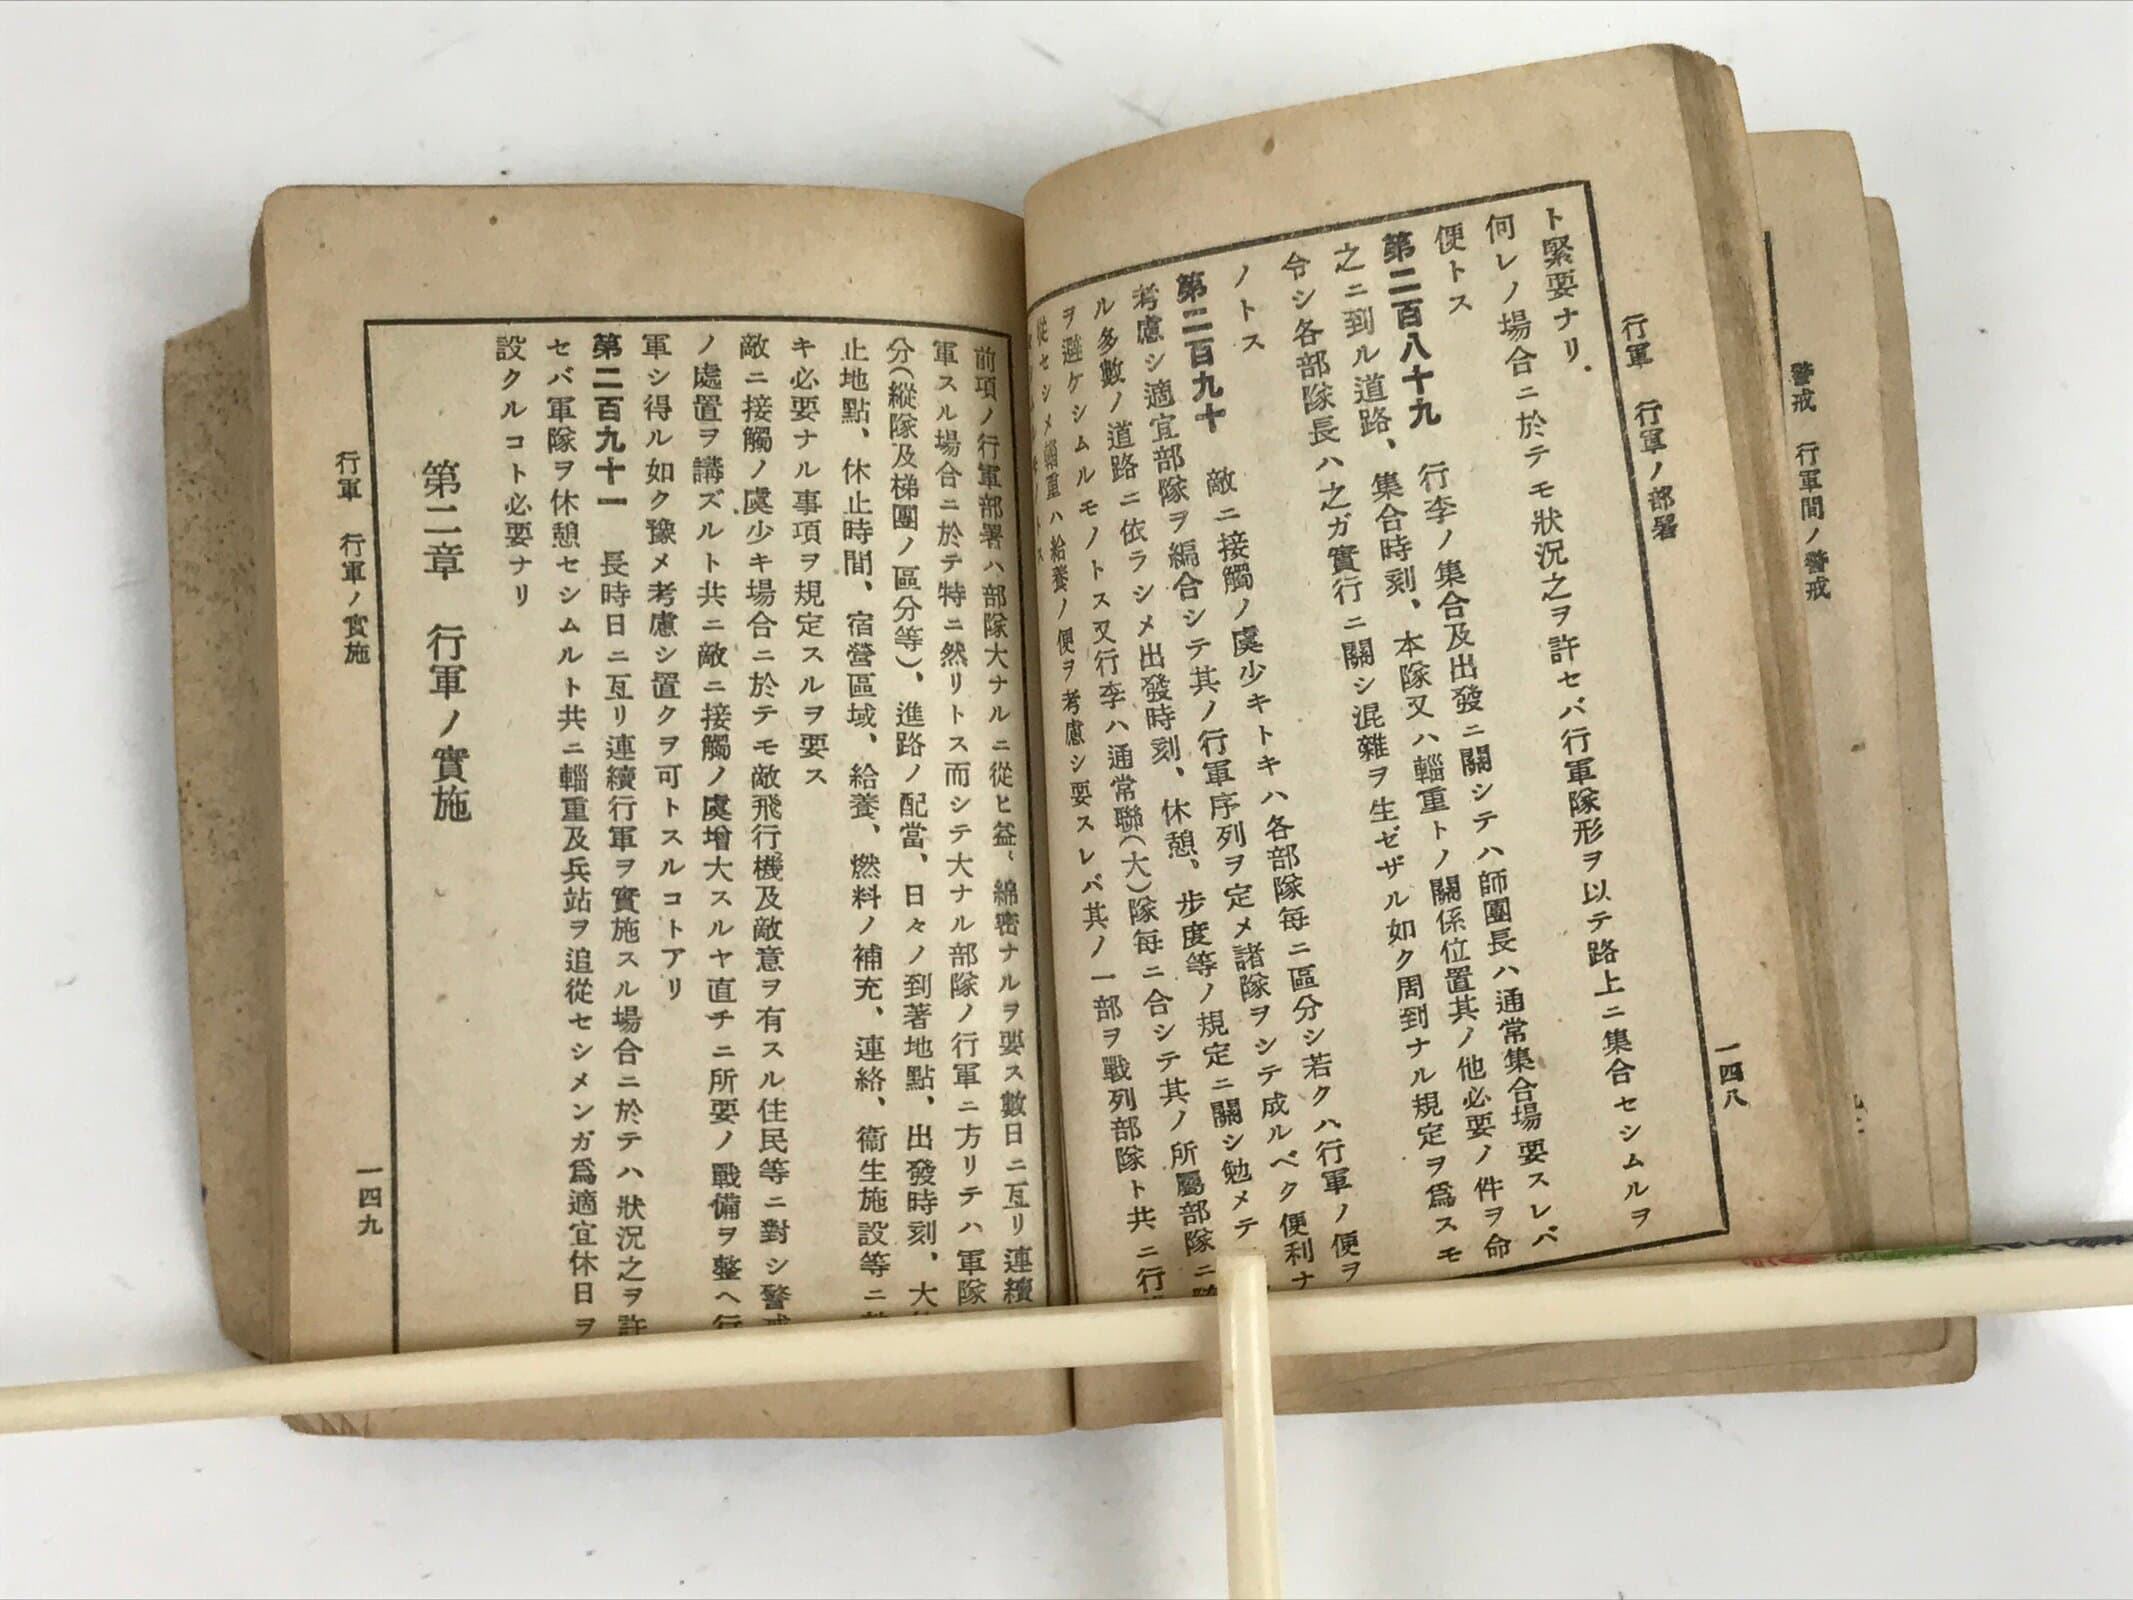 警戒　行軍間ノ警戒
行軍　行軍ノ部署
一四八
ト緊要ナリ
何レノ場合ニ於テモ狀況之ヲ許セバ行軍隊形ヲ以テ路上ニ集合セシムルヲ
便トス
第二百八十九　行李ノ集合及出發ニ關シテハ師團長ハ通常集合場要スレバ
之ニ到ル道路、集合時刻、本隊又ハ輜重トノ關係位置其ノ他必要ノ件ヲ命
令シ各部隊長ハ之ガ實行ニ關シ混雜ヲ生ゼザル如ク周到ナル規定ヲ爲スモ
ノトス
第二百九十　敵ニ接觸ノ虞少キトキハ各部隊每ニ區分シ若クハ行軍ノ便ヲ
考慮シ適宜部隊ヲ編合シテ其ノ行軍序列ヲ定メ諸隊ヲシテ成ルベク便利ナ
ル多數ノ道路ニ依ラシメ出發時刻、休憩、步度等ノ規定ニ關シ勉メテ
ヲ避ケシムルモノトス又行李ハ通常聯(大)隊每ニ合シテ其ノ所屬部隊ニ
從セシメ輜重ハ給養ノ便ヲ考慮シ要スレバ其ノ一部ヲ戰列部隊ト共ニ行
前項ノ行軍部署ハ部隊大ナルニ從ヒ益〻綿密ナルヲ要ス數日ニ亙リ連續
軍スル場合ニ於テ特ニ然リトス而シテ大ナル部隊ノ行軍ニ方リテハ軍隊
分(縱隊及梯團ノ區分等)、進路ノ配當、日々ノ到著地點、出發時刻、大
止地點、休止時間、宿營區域、給養、燃料ノ補充、連絡、衞生施設等ニ
キ必要ナル事項ヲ規定スルヲ要ス
敵ニ接觸ノ虞少キ場合ニ於テモ敵飛行機及敵意ヲ有スル住民等ニ對シ警戒
ノ處置ヲ講ズルト共ニ敵ニ接觸ノ虞增大スルヤ直チニ所要ノ戰備ヲ整ヘ行
軍シ得ル如ク豫メ考慮シ置クヲ可トスルコトアリ
第二百九十一　長時日ニ亙リ連續行軍ヲ實施スル場合ニ於テハ狀況之ヲ許
セバ軍隊ヲ休憩セシムルト共ニ輜重及兵站ヲ追從セシメンガ爲適宜休日ヲ
設クルコト必要ナリ
第二章　行軍ノ實施
行軍　行軍ノ實施
一四九